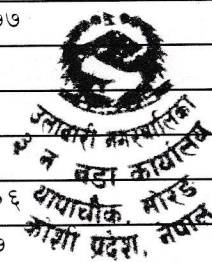 ७७
उर्लाबारी नगरपालिका
३ न वडा कार्यालय
थापाचौक, मोरङ
०६
कोशी प्रदेश, नेपाल
७